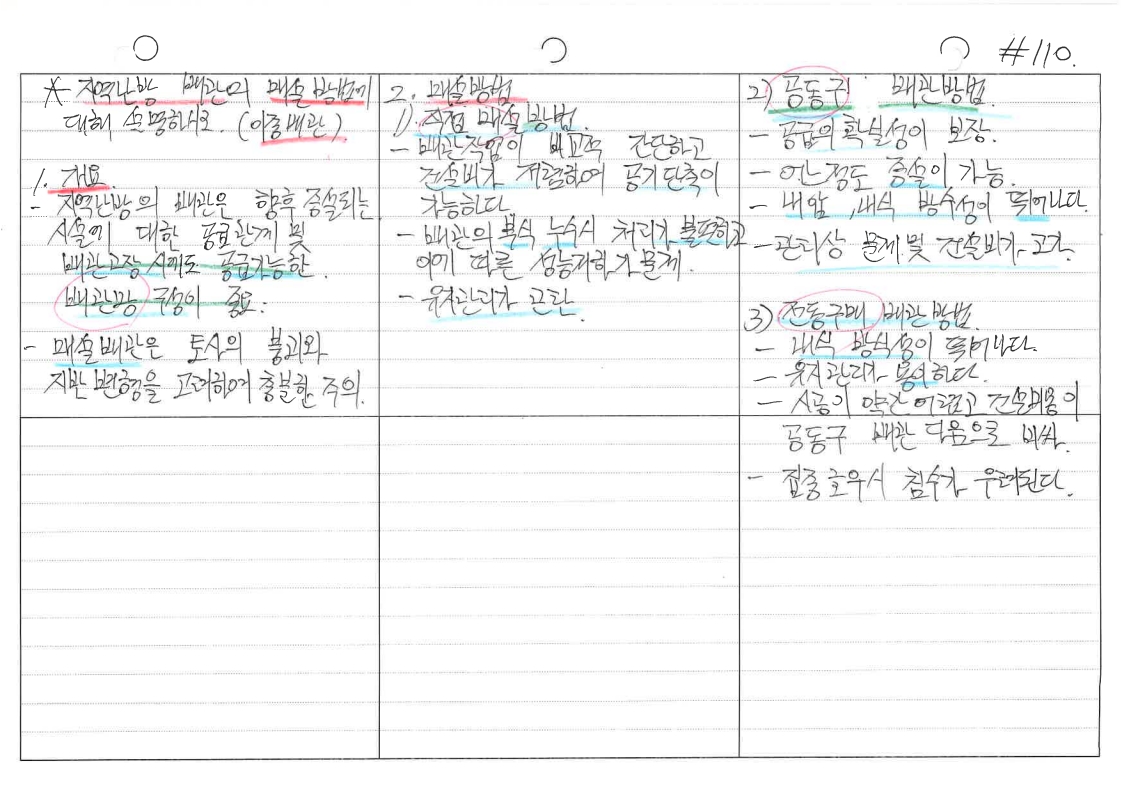 #110.
* 지역난방 배관의 매설방법에
대해 설명하시오. (이중배관)
1. 개요.
- 지역난방의 배관은 향후 증설되는
시설에 대한 공급관계 및
배관고장 시에도 공급가능한
배관망 구성이 중요.
- 매설배관은 토사의 붕괴와
지반변형을 고려하여 충분한 주의.
2. 매설방법
1) 직접 매설방법.
- 배관작업이 비교적 간단하고
건설비가 저렴하여 공기단축이
가능하다
- 배관의 부식 누수시 처리가 불편하고
이에 따른 성능저하가 문제.
- 유지관리가 곤란.
2) 공동구 배관방법.
- 공급의 확실성이 보장.
- 어느정도 증설이 가능.
- 내압, 내식 방수성이 뛰어나다.
- 관리상 문제 및 건설비가 고가.
3) 전동구배 배관방법.
- 내식 방식성이 뛰어나다.
- 유지관리가 용이하다.
- 시공이 약간 어렵고 건설비용이
공동구 배관 다음으로 비싸.
- 집중호우시 침수가 우려된다.